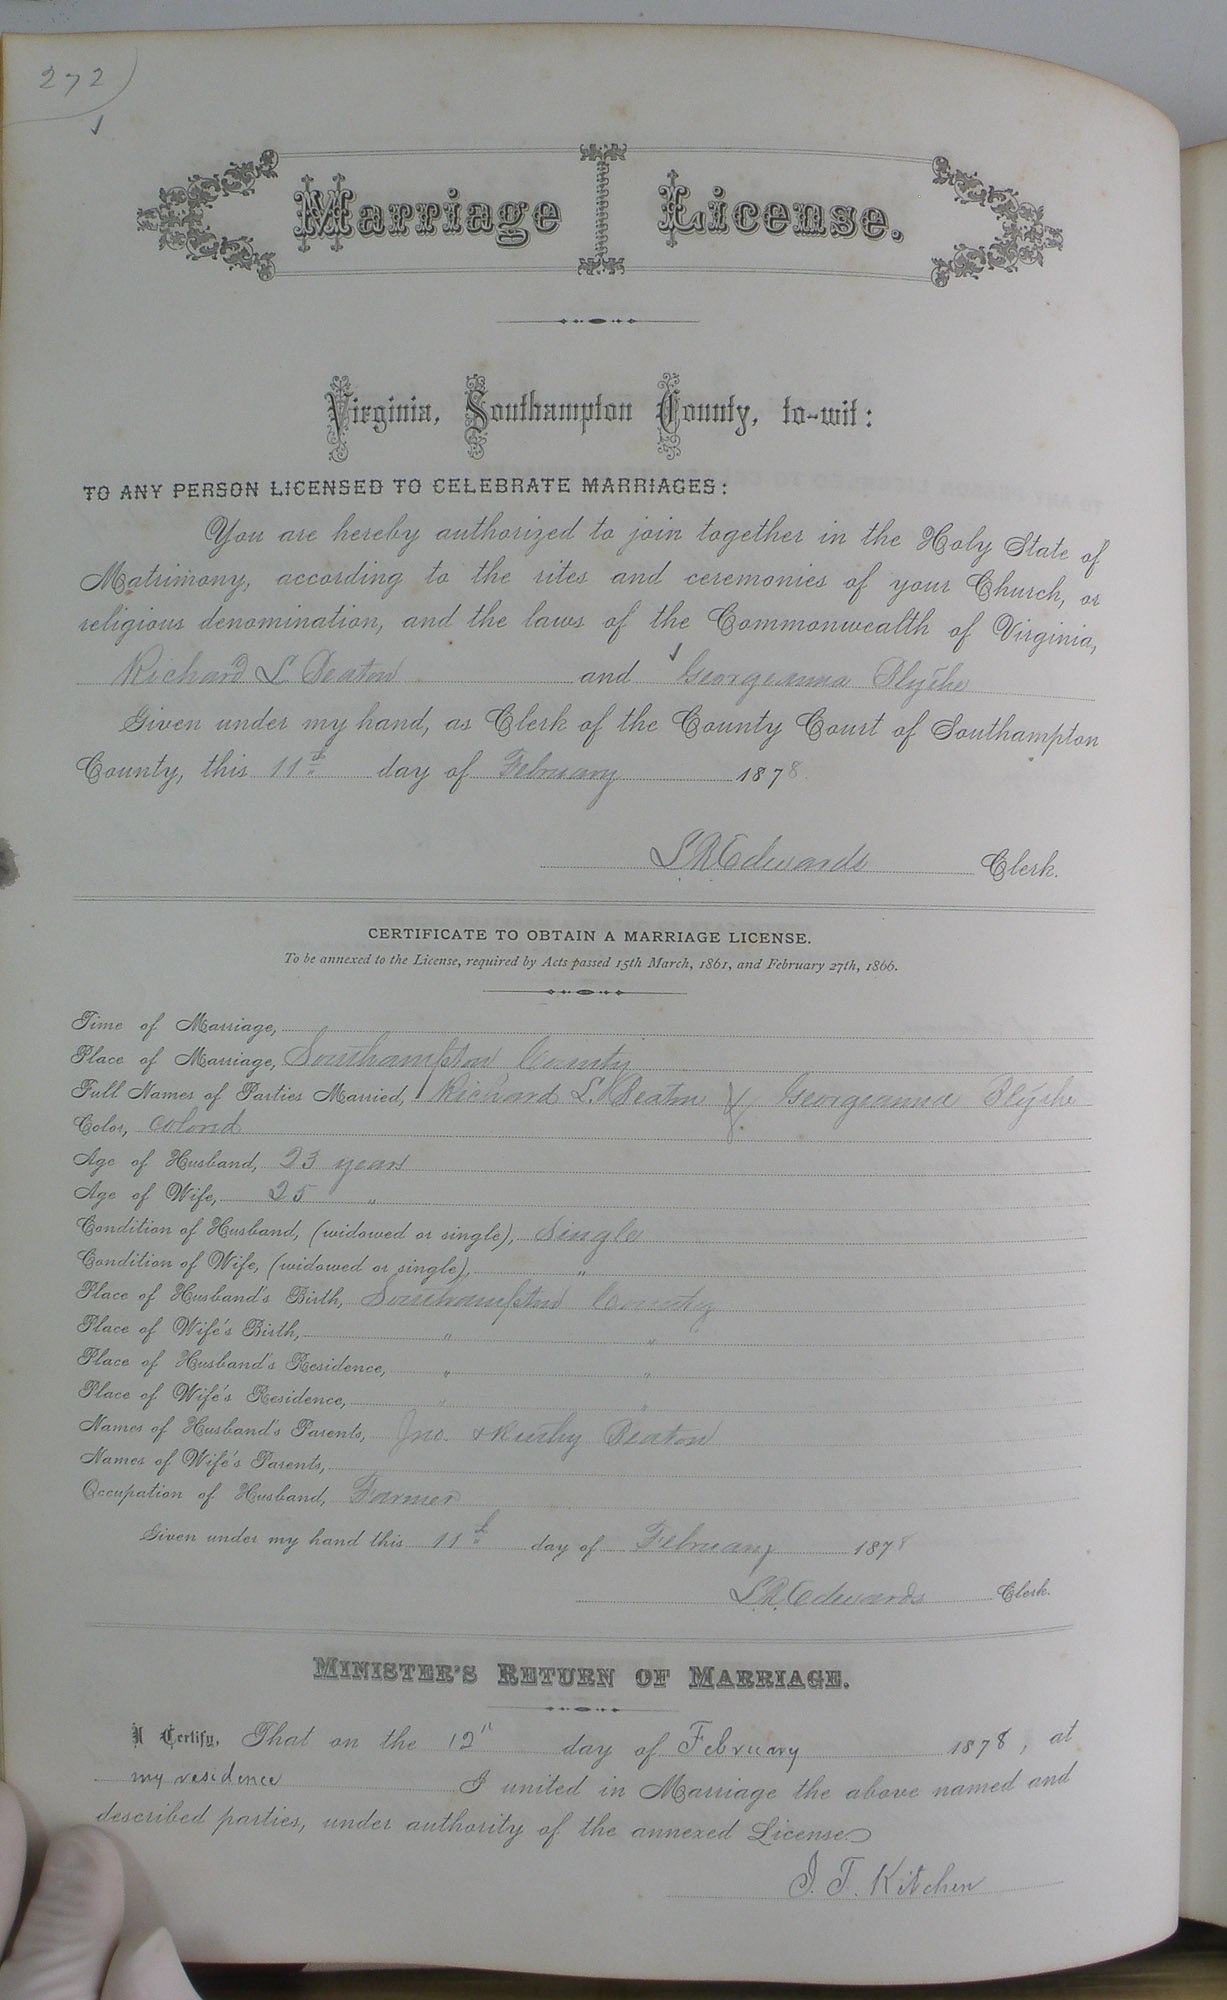 272
Marriage License.
Virginia, Southampton County, to-wit:
TO ANY PERSON LICENSED TO CELEBRATE MARRIAGES:
You are hereby authorized to join together in the Holy State of
Matrimony, according to the rites and ceremonies of your Church, or
religious denomination, and the laws of the Commonwealth of Virginia,
Richard L. Beaton and Georgeanna Blythe
Given under my hand, as Clerk of the County Court of Southampton
County, this 11th day of February 1878
L R Edwards Clerk.
CERTIFICATE TO OBTAIN A MARRIAGE LICENSE.
To be annexed to the License, required by Acts passed 15th March, 1861, and February 27th, 1866.
Time of Marriage,
Place of Marriage, Southampton County
Full Names of Parties Married, Richard L. Beaton & Georgeanna Blythe
Color, Colored
Age of Husband, 23 years
Age of Wife, 25 "
Condition of Husband, (widowed or single), Single
Condition of Wife, (widowed or single), "
Place of Husband's Birth, Southampton County
Place of Wife's Birth, " "
Place of Husband's Residence, " "
Place of Wife's Residence, " "
Names of Husband's Parents, Jno. & Beaton
Names of Wife's Parents,
Occupation of Husband, Farmer
Given under my hand this 11th day of February 1878
L R Edwards Clerk.
MINISTER'S RETURN OF MARRIAGE.
I Certify, That on the 12" day of February 1878, at
my residence I united in Marriage the above named and
described parties, under authority of the annexed License
J. T. Kitchen